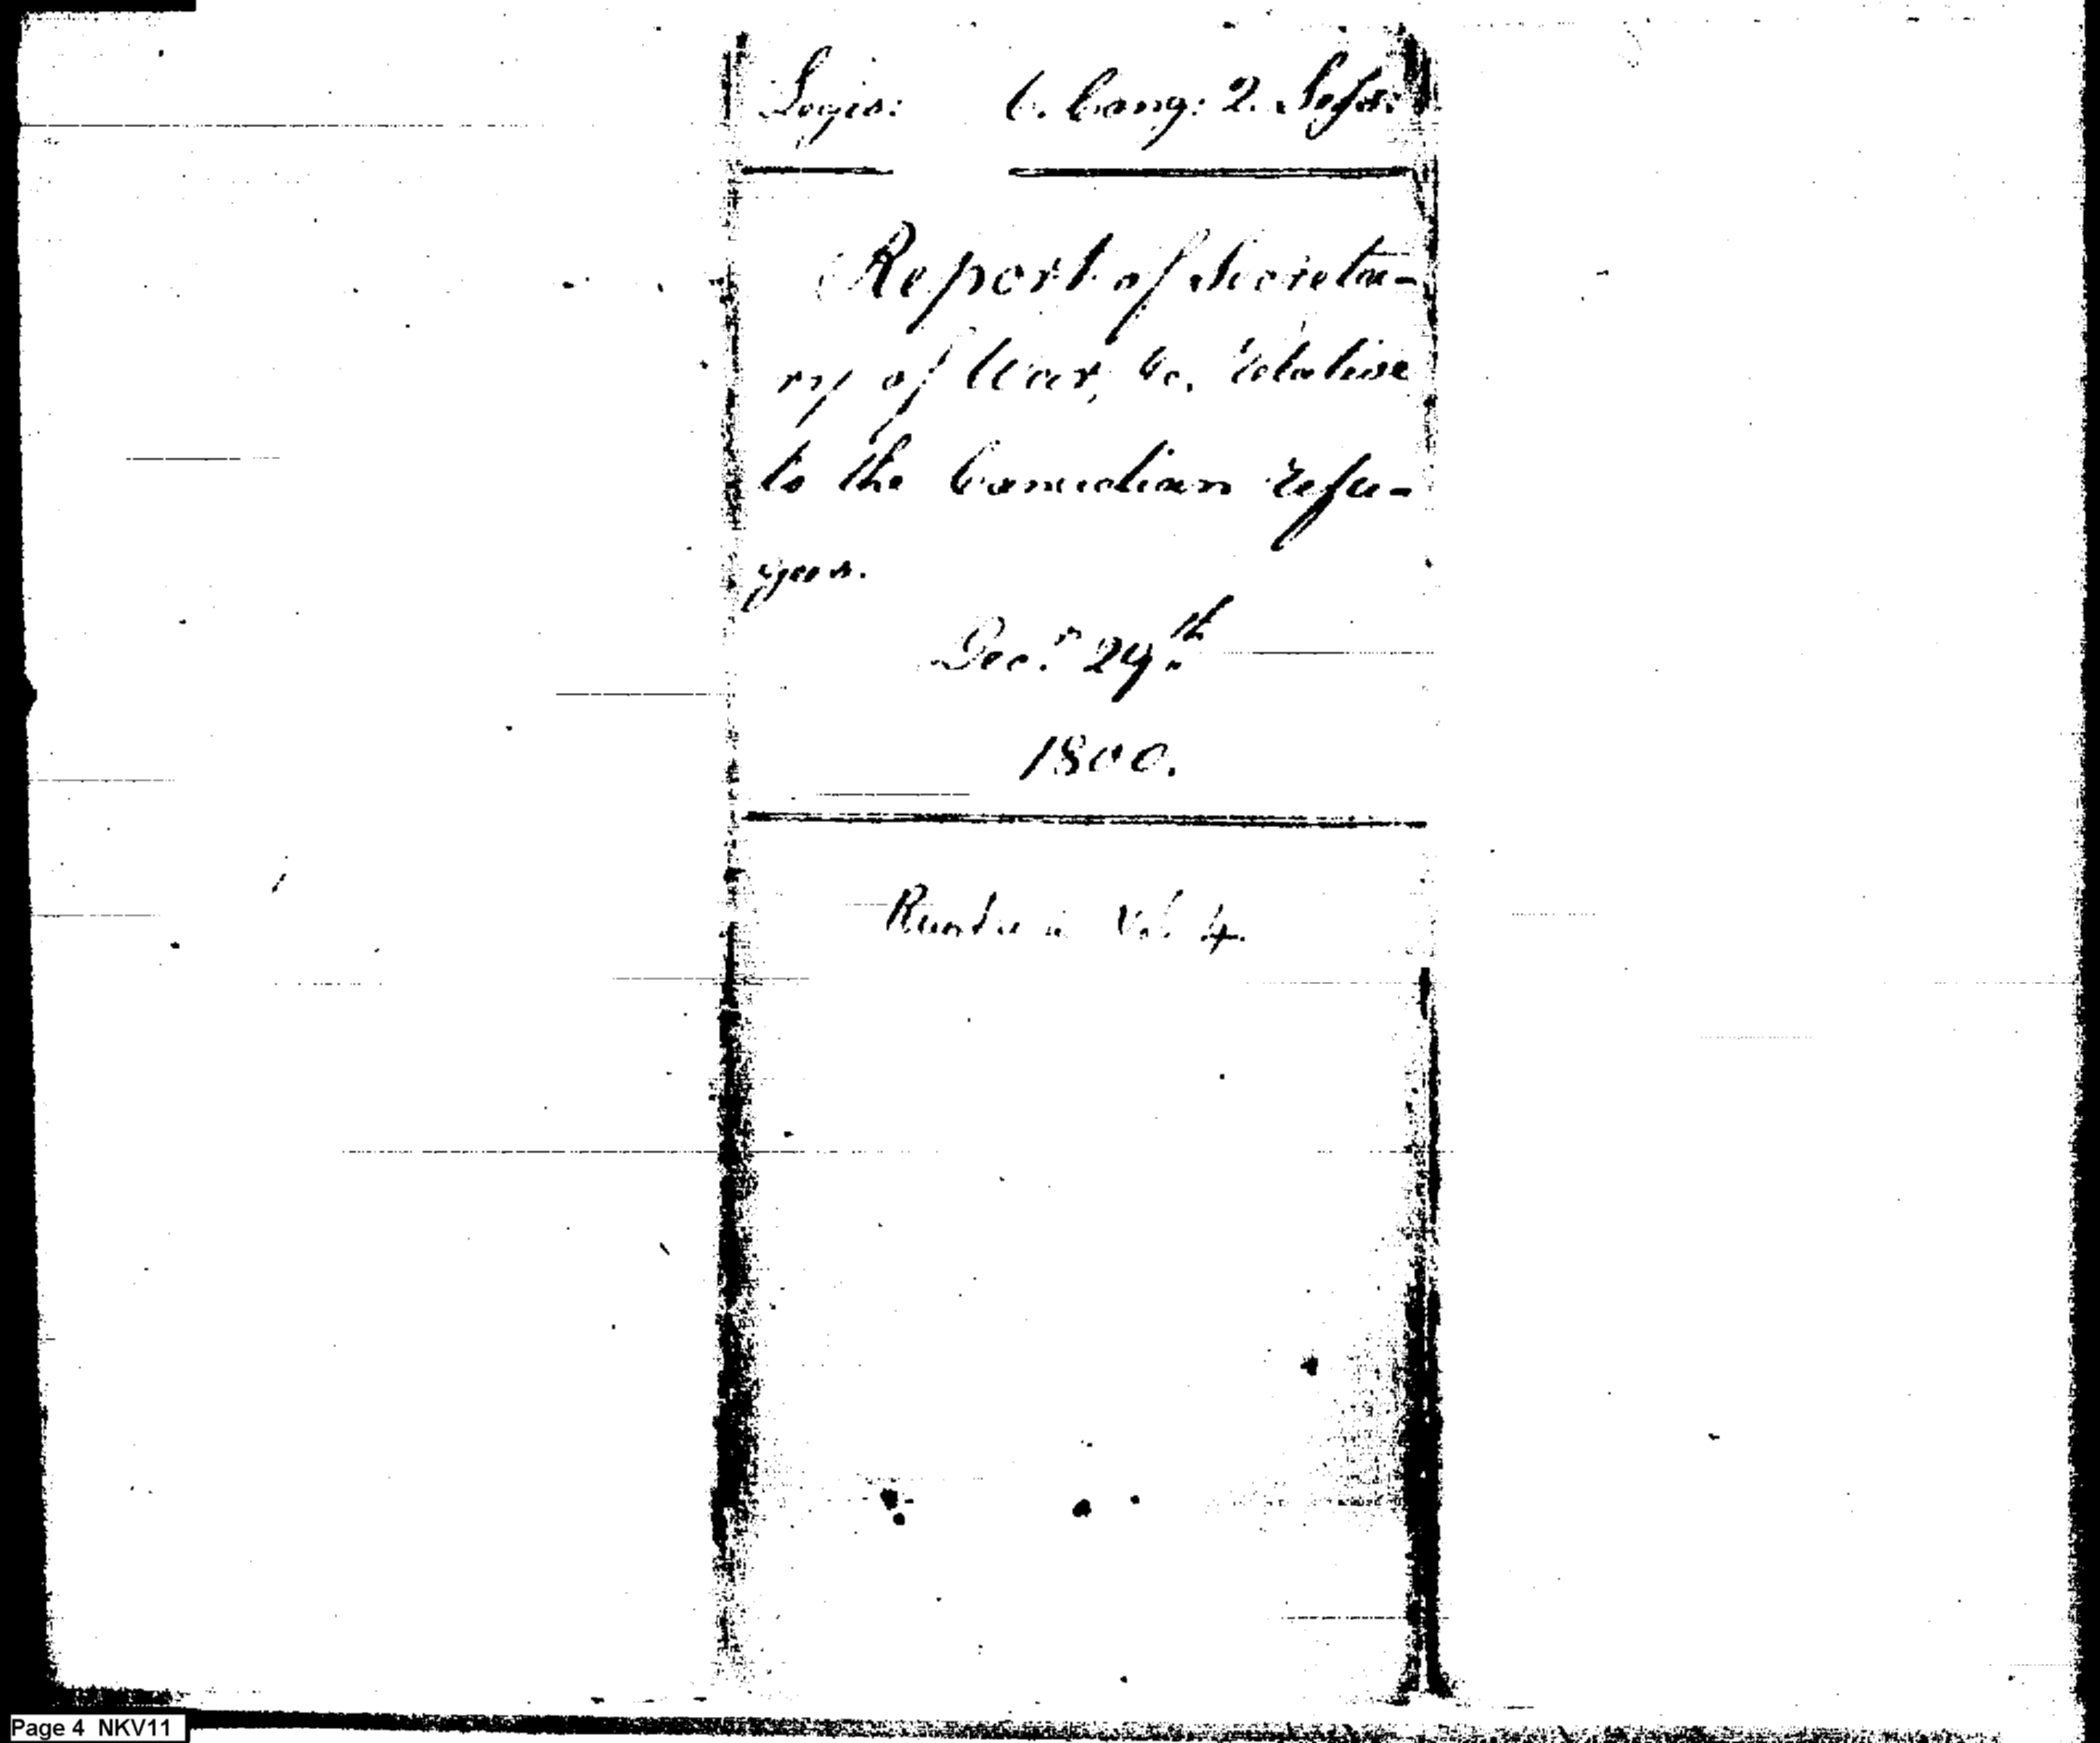 Legis: 6. Cong: 2. Sess:
Report of Secreta-
ry of War, &c. relative
to the Canadian refu-
gees.
Decr. 29th
1800.
Vol 4.
Page 4 NKV11